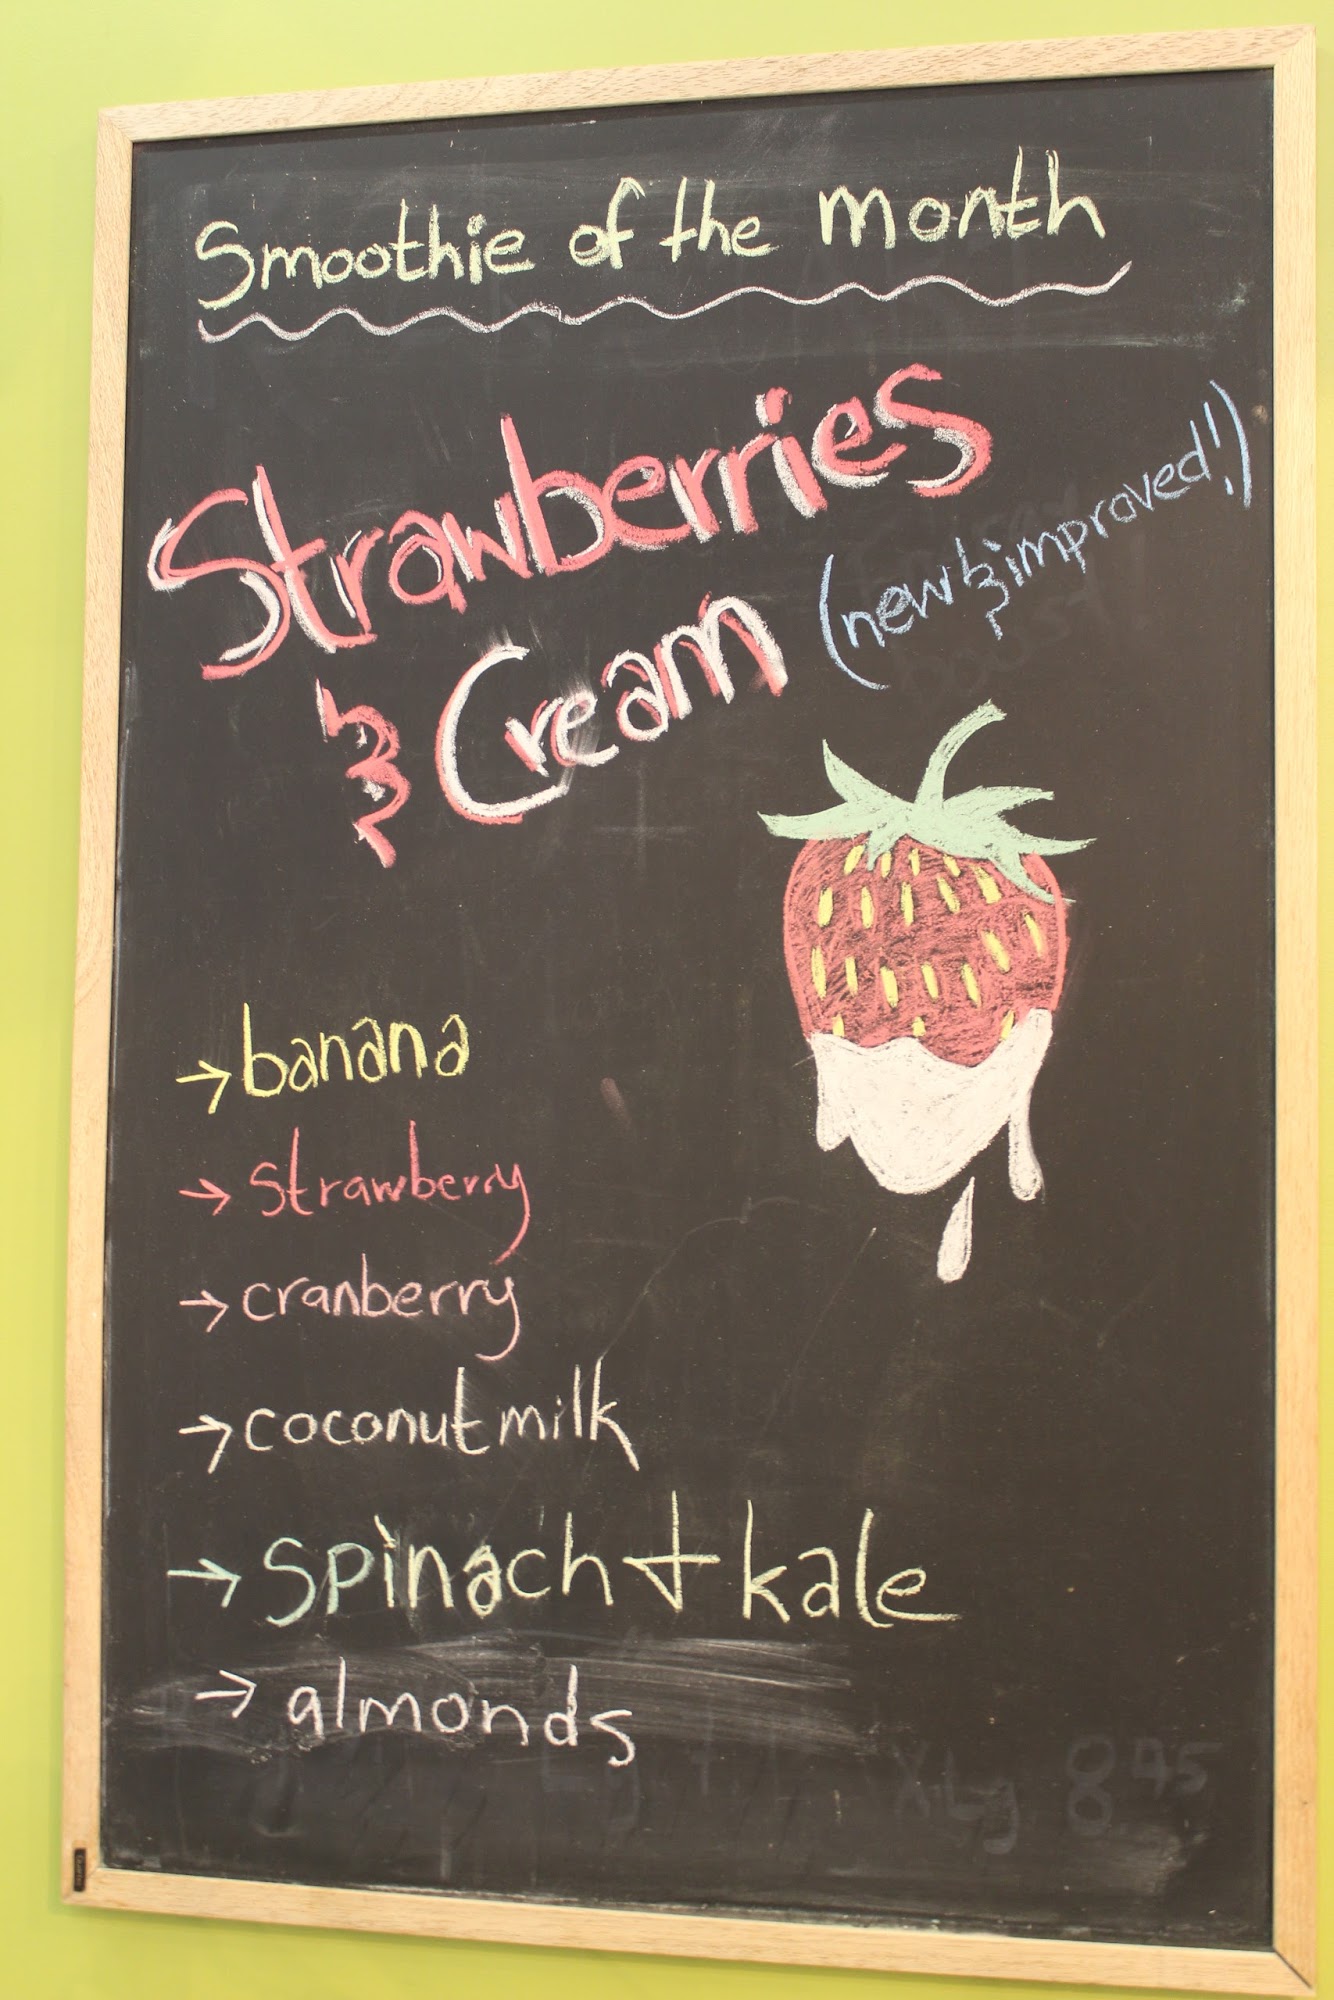 Smoothie of the month
Strawberries
& Cream (new & improved!)
→ banana
→ strawberry
→ cranberry
→ coconut milk
→ spinach + kale
→ almonds
XLg 8.45